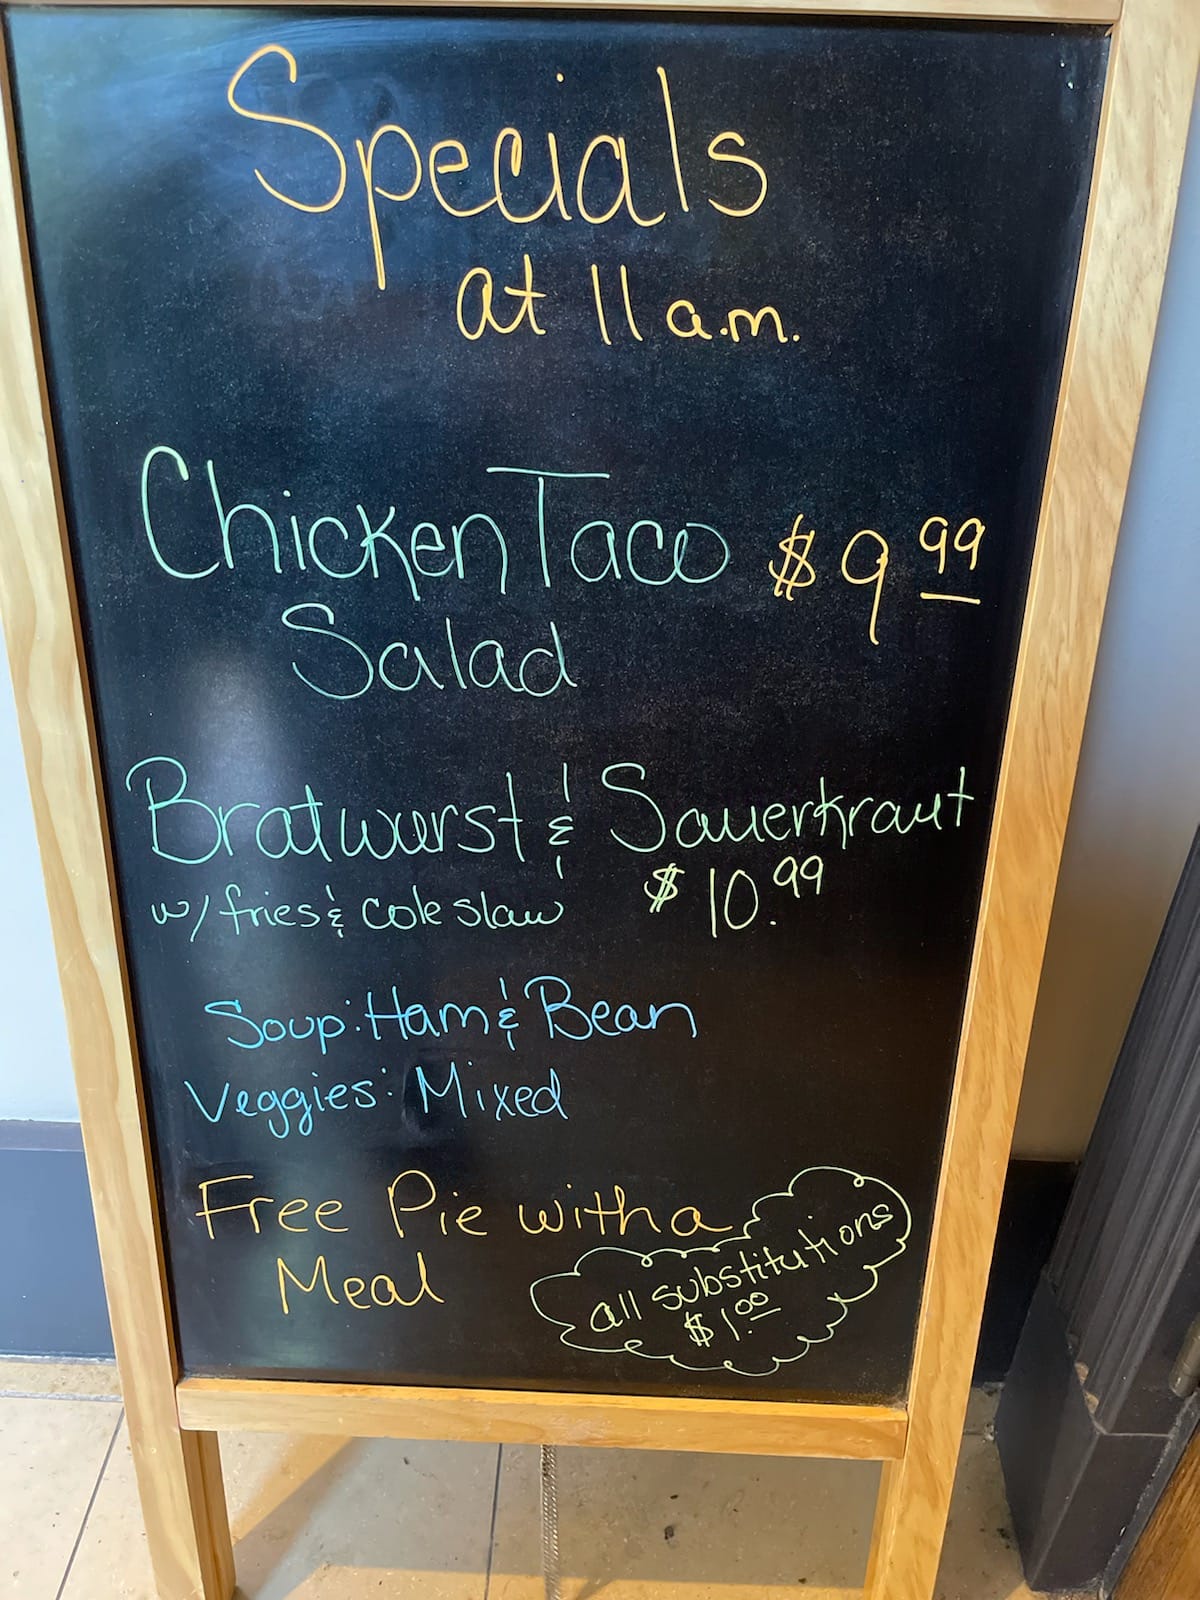 Specials
at 11 a.m.
Chicken Taco $9.99
Salad
Bratwurst & Sauerkraut
w/ fries & cole slaw $10.99
Soup: Ham & Bean
Veggies: Mixed
Free Pie with a
Meal
all substitutions
$1.00